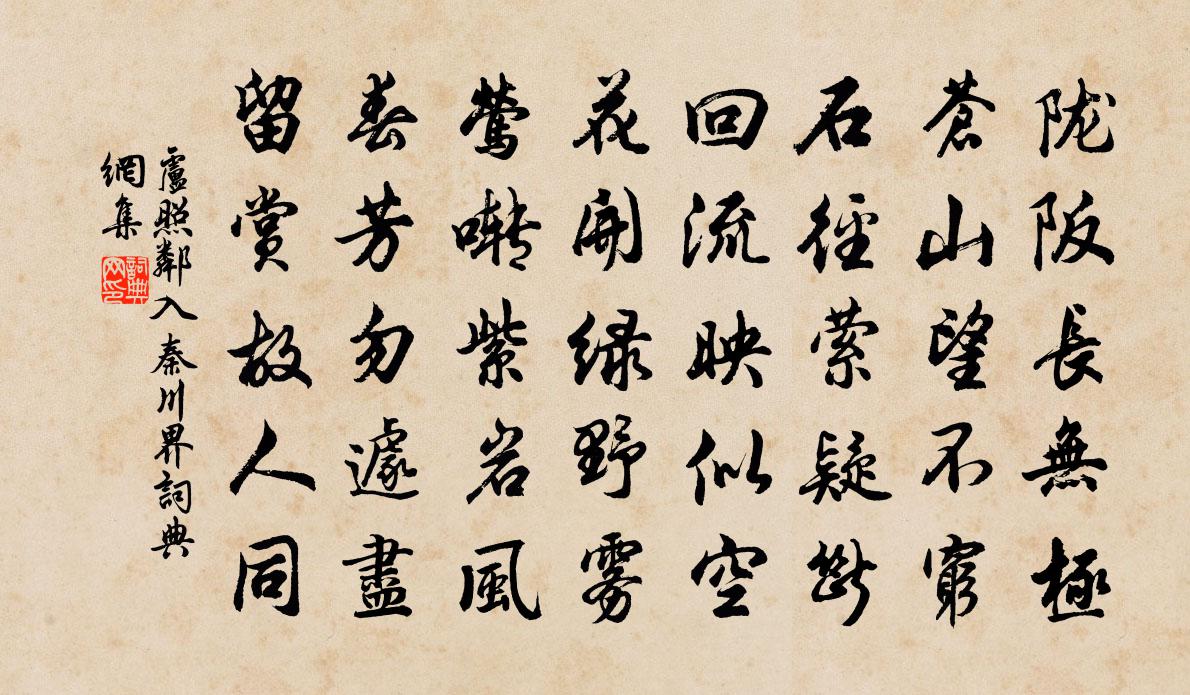 陇阪長無極
蒼山望不窮
石徑萦疑斷
回流映似空
花開绿野雾
莺啭紫岩風
春芳勿遽盡
留賞故人同
盧照鄰入秦川界詞典
網集
詞典
网印